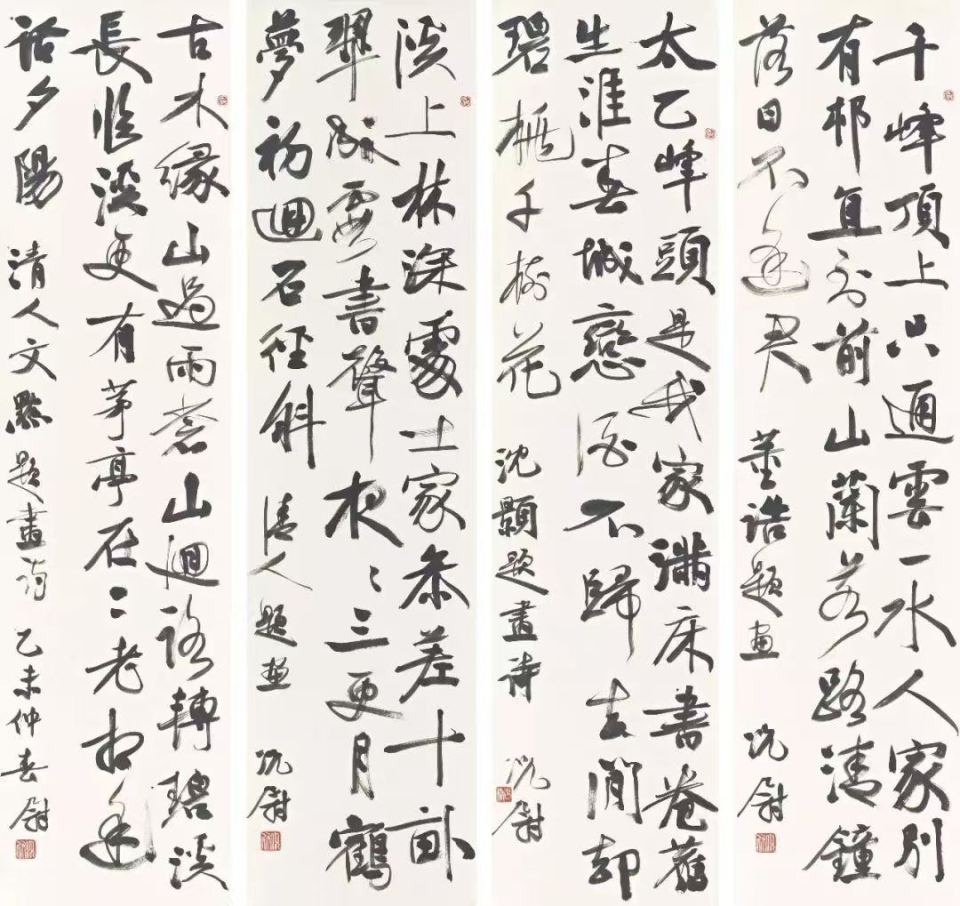 千峰頂上只通雲一水人家別
有邨直到前山蘭若路清鐘
落日不逢君 董誥題画 沈尉
太乙峰頭是我家滿床書卷舊
生涯春城戀酒不歸去閒却
碧桃千樹花 沈顥題畫詩 沈尉
溪上林深處士家參差十畝
翠成霞書聲夜々三更月鶴
夢初迴石徑斜 清人題畫 沈尉
古木緣山過雨蒼山迴路轉碧溪
長臨溪更有茅亭在二老相逢
話夕陽 清人文點題畫詩 乙未仲春尉